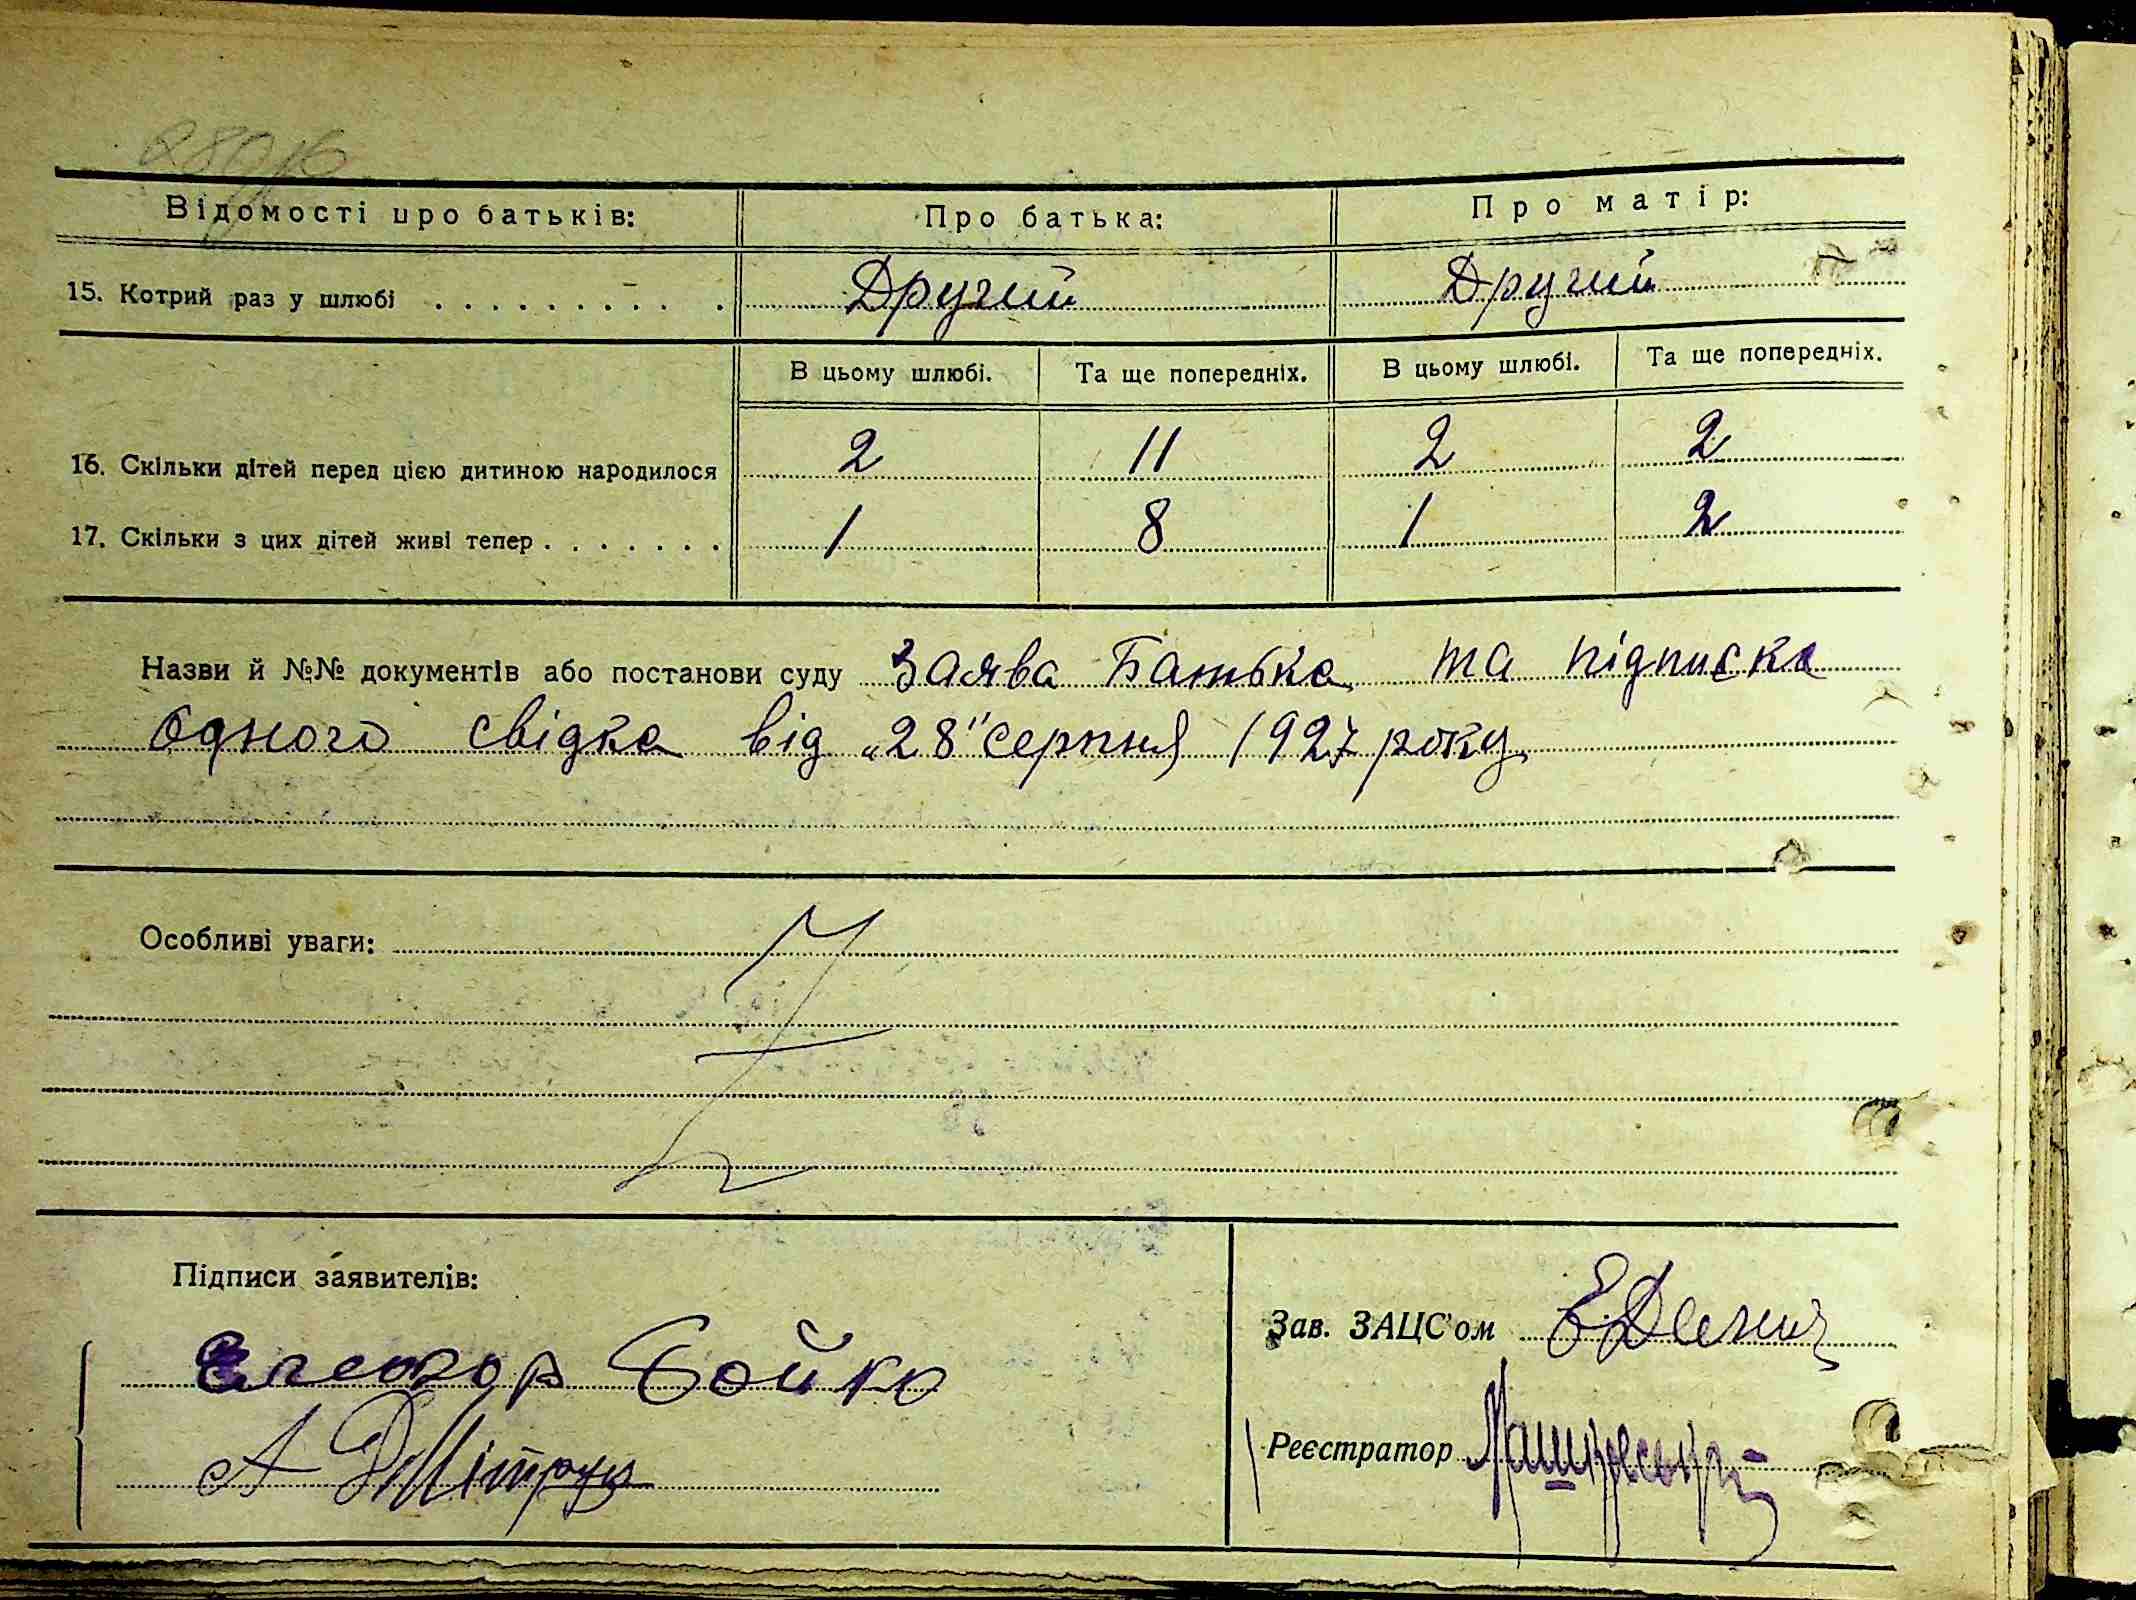 Відомості про батьків: Про батька: Про матір:
15. Котрий раз у шлюбі . . . . . . . . . . Другий Другий
В цьому шлюбі. Та ще попередніх. В цьому шлюбі. Та ще попередніх.
16. Скільки дітей перед цією дитиною народилося 2 11 2 2
17. Скільки з цих дітей живі тепер . . . . . . . 1 8 1 2
Назви й №№ документів або постанови суду Заява Батька та підписка
одного свідка від „28" серпня 1927 року
Особливі уваги:
Підписи заявителів:
Зав. ЗАЦС'ом
Бойко
Реєстратор